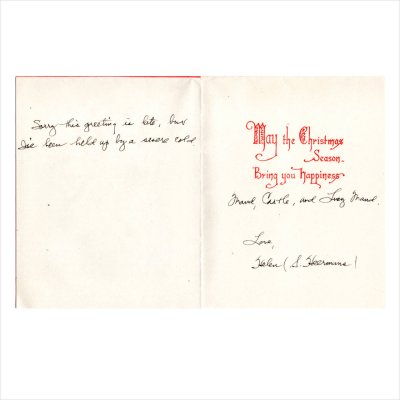 Sorry this greeting is late, but
I've been held up by a severe cold
May the Christmas
Season
Bring you Happiness
Maud, Castle, and Lucy Maud.
Love,
Helen (S. Heermans)